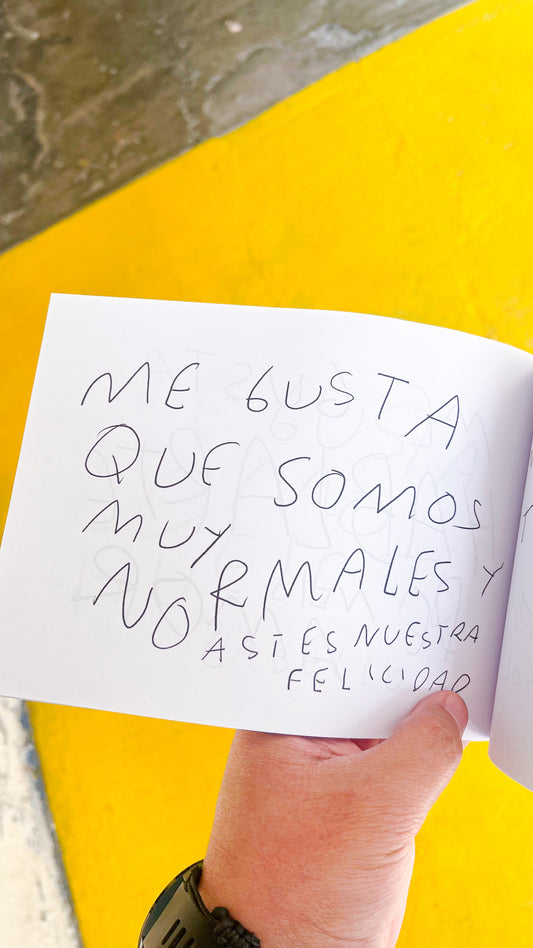 ME GUSTA
QUE SOMOS
MUY
NORMALES Y
ASI ES NUESTRA
FELICIDAD